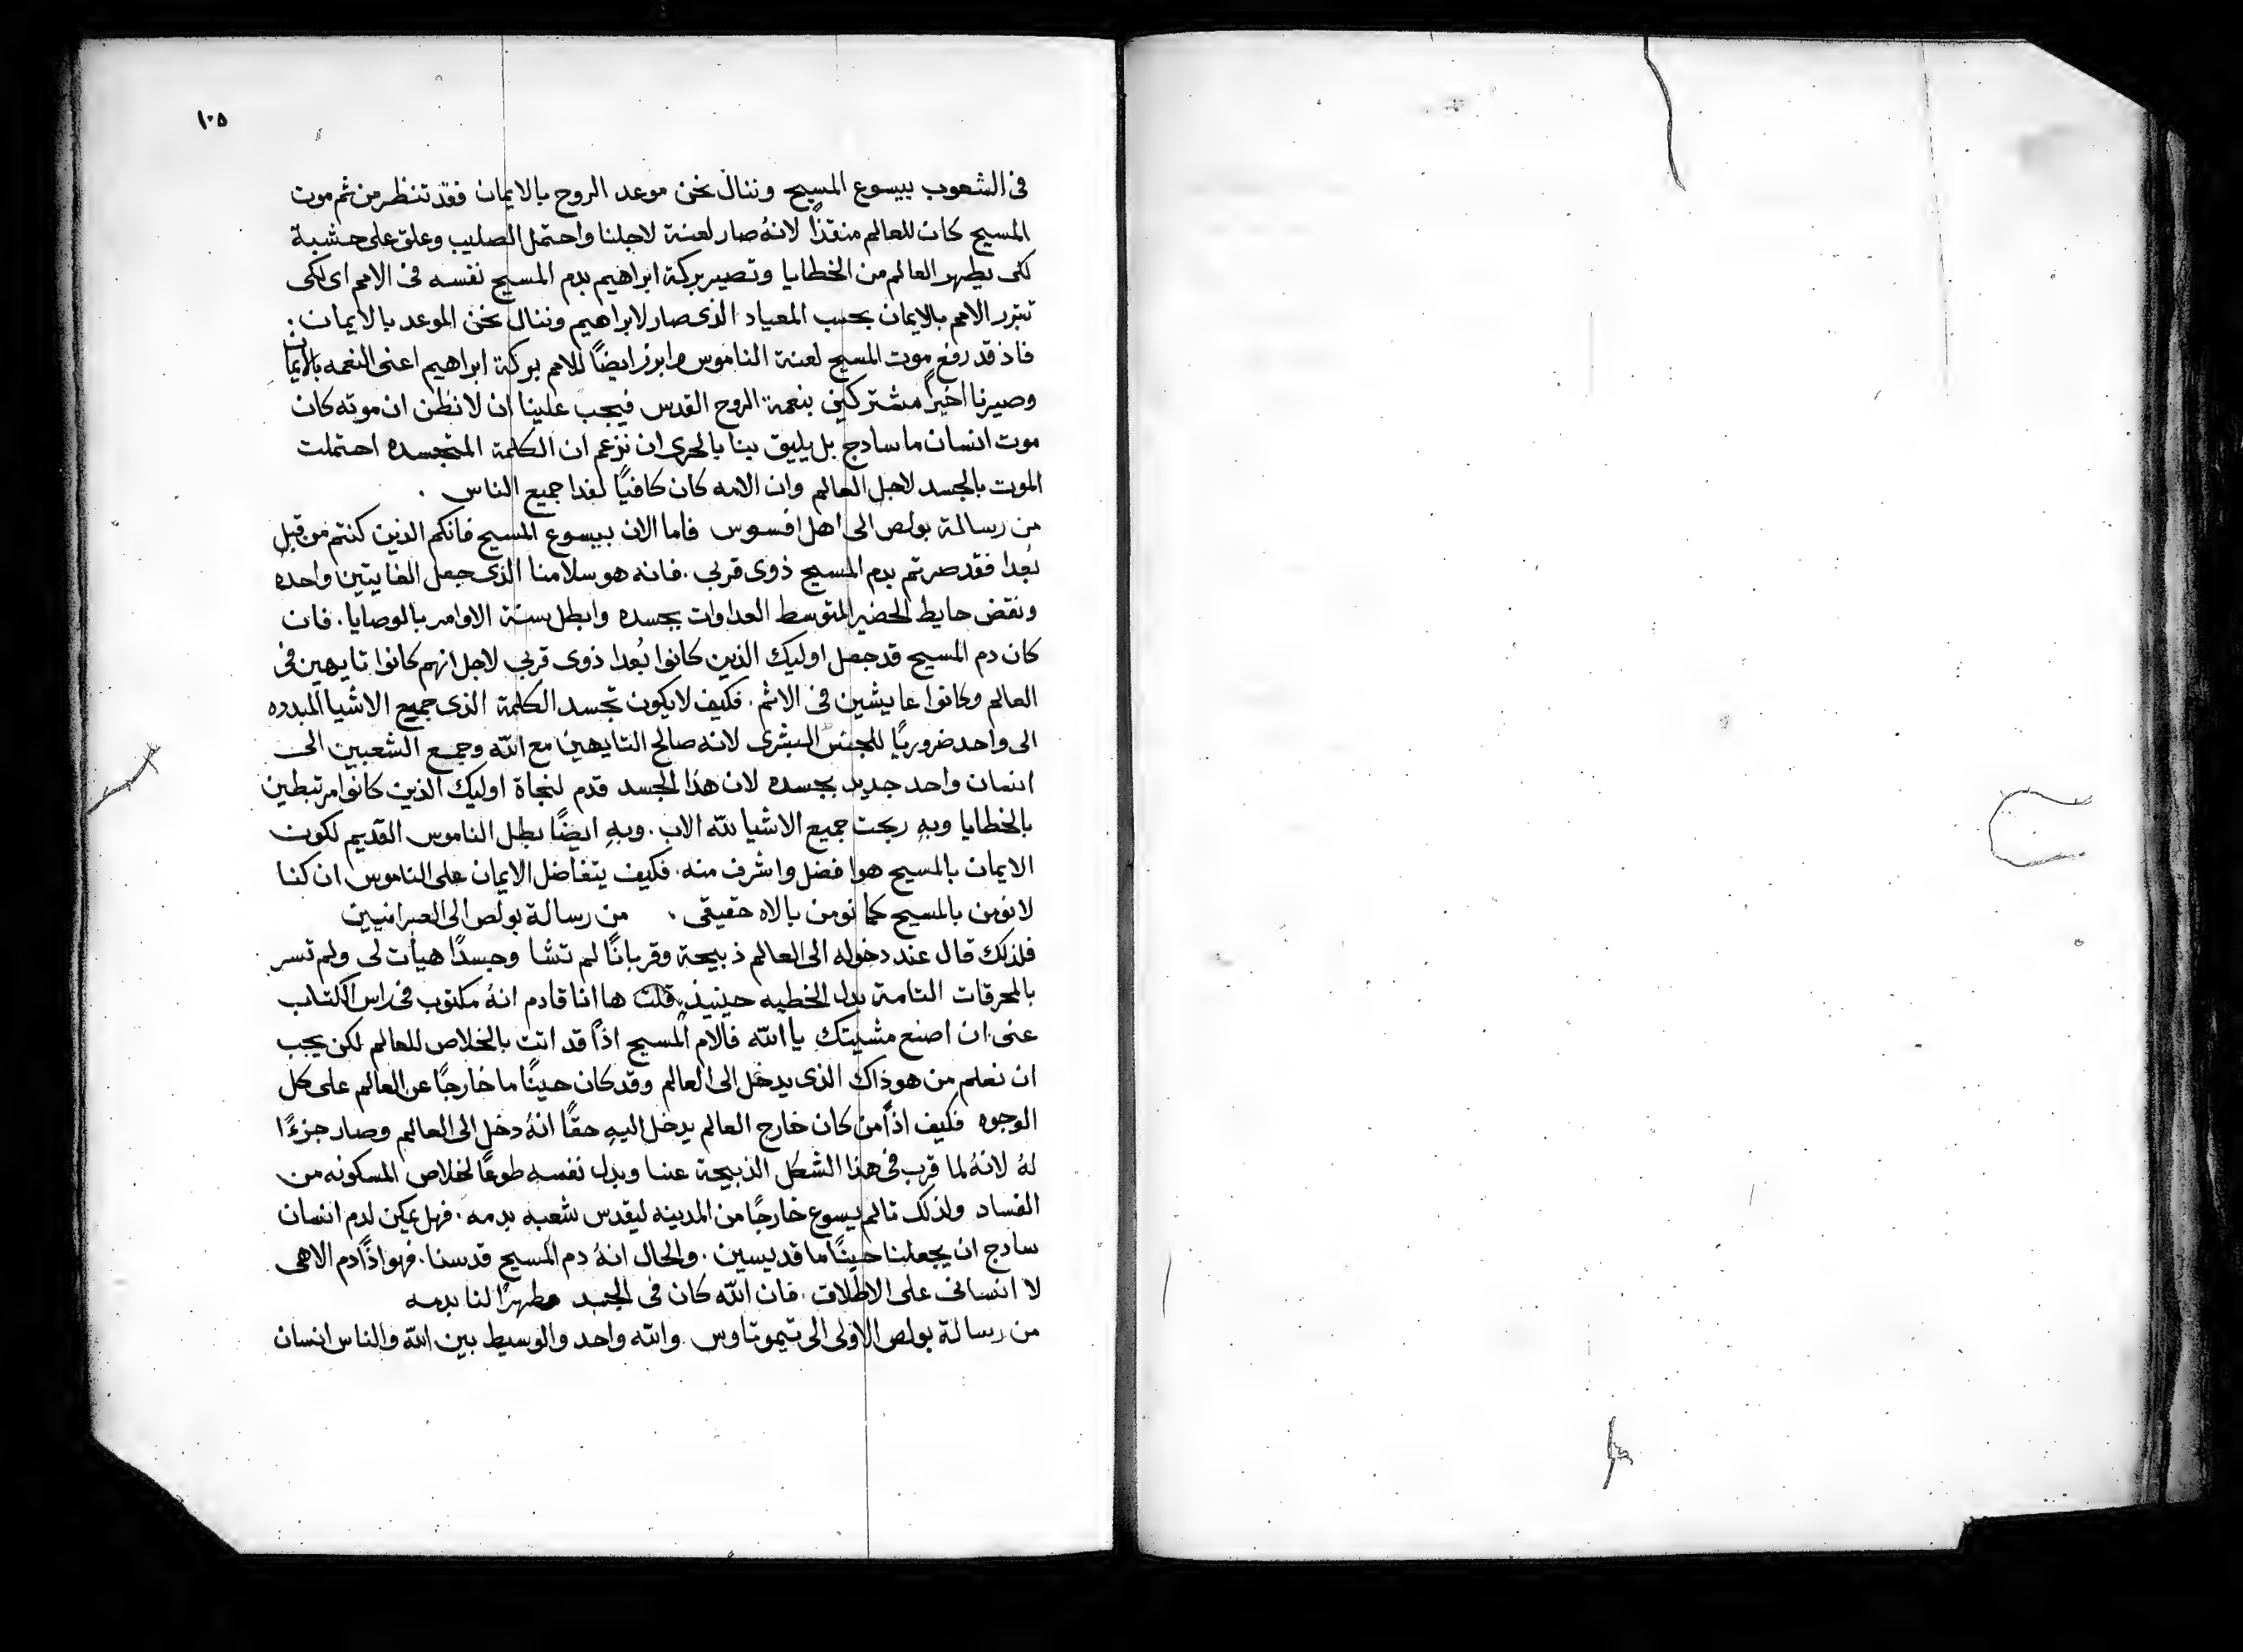 ١٠٥
فى الشعوب بيسوع المسيح وننال نحن موعد الروح بالايمان فقد تنظر من ثم موت
المسيح كان للعالم منقذًا لانهُ صار لعنة لاجلنا واحتمل الصليب وعلق على خشبة
لكى يطهر العالم من الخطايا وتصير بركة ابراهيم بدم المسيح نفسه فى الامم اى لكى
تتبرر الامم بالايمان بحسب المعياد الذى صار لابراهيم وننال نحن الموعد بالايمان .
فاذ قد رفع موت المسيح لعنة الناموس وابرز ايضًا للامم بركة ابراهيم اعنى النعمه بالايمان
وصيرنا اخيرًا مشتركين بنعمة الروح القدس فيجب علينا ان لا نظن ان موته كان
موت انسان ما سادج بل يليق بنا بالحرى ان نزعم ان الكلمة المتجسده احتملت
الموت بالجسد لاجل العالم وان الامه كان كافيًا لفدا جميع الناس .
من رسالة بولص الى اهل افسوس فاما الان بيسوع المسيح فانكم الذين كنتم من قبل
بُعدا فقد صرتم بدم المسيح ذوى قربى . فانه هو سلامنا الذى جعل الفايتين واحده
ونقض حايط الحضير المتوسط العداوات بجسده وابطل سنة الاوامر بالوصايا . فان
كان دم المسيح قد جعل اوليك الذين كانوا بُعدا ذوى قربى لاجل انهم كانوا تايهين فى
العالم وكانوا عايشين فى الاثم . فكيف لا يكون تجسد الكلمة الذى جميع الاشيا المبدده
الى واحد ضروريًا للجنس البشرى لانه صالح التايهين مع الله وجمع الشعبين الى
انسان واحد جديد بجسده لان هذا الجسد قدم لنجاة اوليك الذين كانوا مرتبطين
بالخطايا وبهِ ربحت جميع الاشيا لله الاب . وبهِ ايضًا بطل الناموس القديم لكون
الايمان بالمسيح هو افضل واشرف منه . فكيف يتفاضل الايمان على الناموس ان كنا
لا نومن بالمسيح كما نومن بالاه حقيقى . من رسالة بولص الى العبرانيين
فلذلك قال عند دخوله الى العالم ذبيحة وقربانًا لم تشا وجسدًا هيأت لى ولم تسر
بالمحرقات التامة بدل الخطيه حينيذ قلت ها انا قادم انهُ مكتوب فى راس الكتاب
عنى ان اصنع مشيتك يا الله فالام المسيح اذًا قد اتت بالخلاص للعالم لكن يجب
ان نعلم من هو ذاك الذى يدخل الى العالم وقد كان حينًا ما خارجًا عن العالم على كل
الوجوه فكيف اذًا من كان خارج العالم يدخل اليهِ حقًا انهُ دخل الى العالم وصار جزءًا
لهُ لانهُ لما قرب فى هذا الشكل الذبيحة عنا وبدل نفسه طوعًا لخلاص المسكونه من
الفساد ولذلك تالم يسوع خارجًا من المدينه ليقدس شعبه بدمه . فهل يمكن لدم انسان
سادج ان يجعلنا حينًا ما قديسين . والحال انهُ دم المسيح قدسنا . فهو اذًا دم الاهى
لا انسانى على الاطلاق . فان الله كان فى الجسد مطهرًا لنا بدمه
من رسالة بولص الاولى الى تيموتاوس . والله واحد والوسيط بين الله والناس انسان